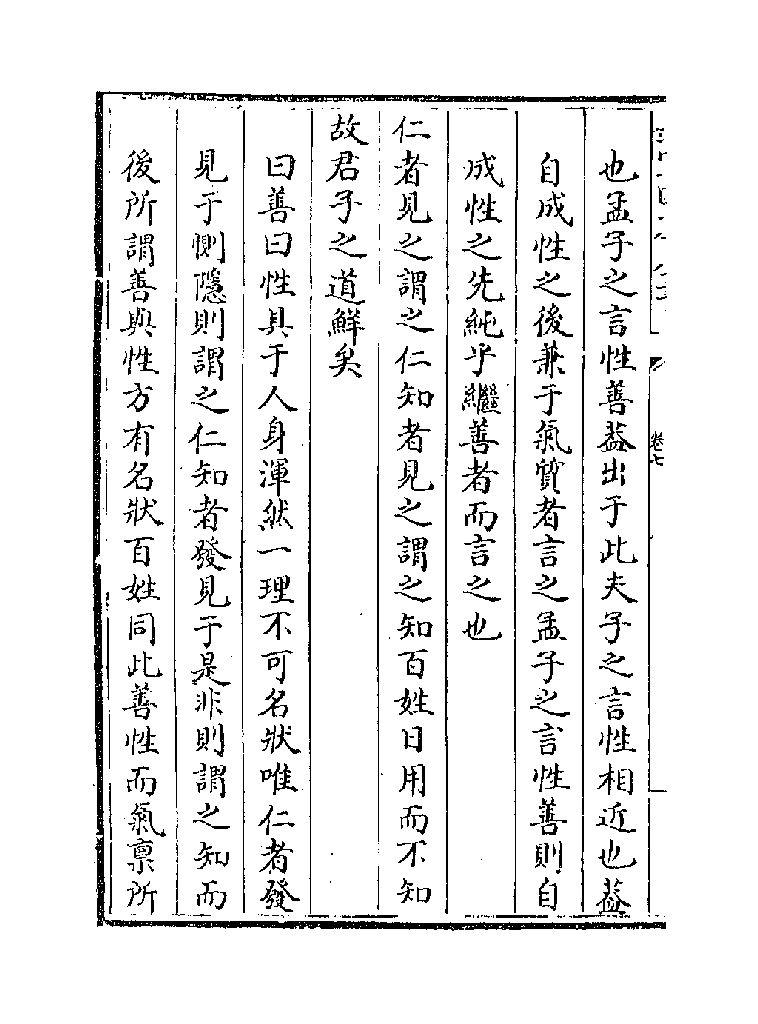 也孟子之言性善葢出于此夫子之言性相近也葢
自成性之後兼于氣質者言之孟子之言性善則自
成性之先純乎繼善者而言之也
仁者見之謂之仁知者見之謂之知百姓日用而不知
故君子之道鮮矣
曰善曰性具于人身渾然一理不可名狀唯仁者發
見于惻隱則謂之仁知者發見于是非則謂之知而
後所謂善與性方有名狀百姓同此善性而氣禀所
卷七